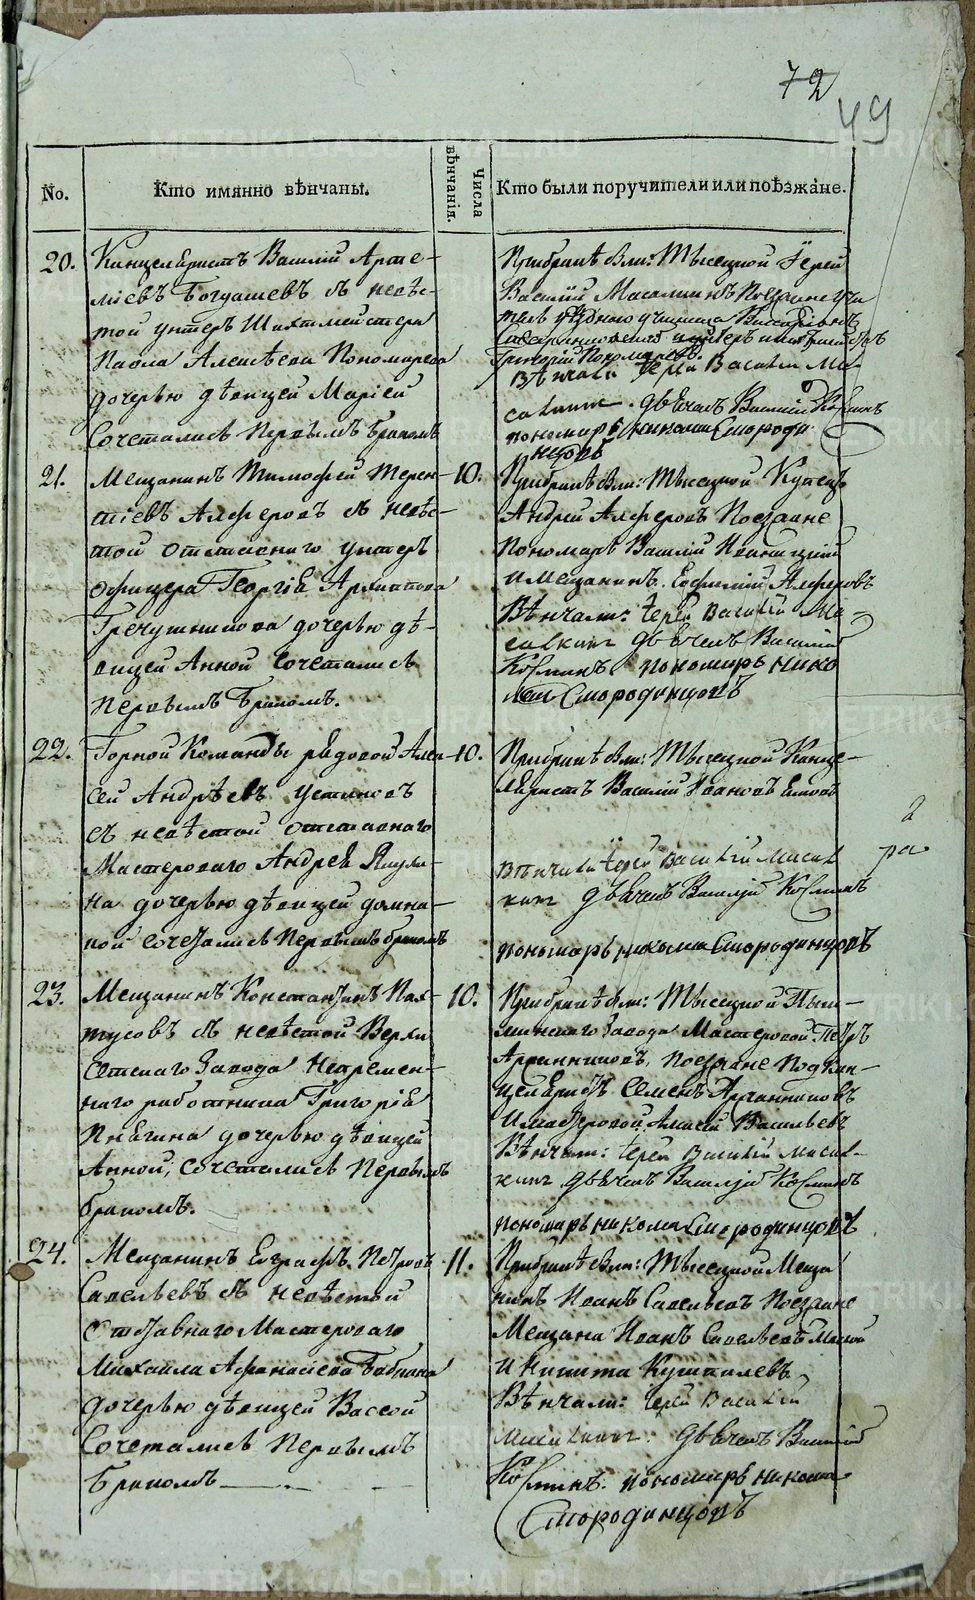 72
49
No.
Кто имянно вѣнчаны.
Числа вѣнчанія.
Кто были поручители или поѣзжане.
20. Канцеляристъ Василій Арте-
міевъ Богдашевъ съ невѣс-
той унтеръ Шихтмейстера
Павла Алексѣева Пономарева
дочерью дѣвицей Маріей
Сочетались первымъ бракомъ
При бракѣ были: Тысяцкой Іерей
Василій Масалкинъ Поезжане учи
тель уѣзднаго училища
Григорій Пономаревъ.
Вѣнчали Іерей Василій Ма-
салкинъ. дьячекъ Василій Косминъ
пономарь Никола Смороди
нцовъ
21. Мещанинъ Тимофей Терен-
тіевъ Алферовъ съ невѣс-
той отставнаго унтеръ
офицера Георгія Архипова
дочерью дѣ-
вицей Анной Сочетались
первымъ бракомъ.
10.
При бракѣ были: Тысяцкой Купецъ
Андрей Алферовъ Поезжане
Пономарь Василій
и Мещанинъ Ефимій Алферовъ
Вѣнчали: Іерей Василій Ма-
салкинъ дьячекъ Василій
Косминъ пономарь Нико
лай Смородинцовъ
22. Горной Команды рядовой Алек-
сей Андрѣевъ Устиновъ
съ невѣстой отставнаго
Мастероваго Андрея
на дочерью дѣвицей домна-
ной сочетались первымъ бракомъ
10.
При бракѣ были: Тысяцкой Канце-
ляристъ Василій Ивановъ
Вѣнчали Іерей Василій Масал
кинъ дьячекъ Василій Косминъ
пономарь никола Смородинцовъ
2
ра
23. Мещанинъ Константинъ Пах-
тусовъ съ невѣстой Верхи
сетскаго Завода Непремен-
наго работника Григорія
Пнягина дочерью дѣвицей
Анной, сочетались первымъ
бракомъ.
10.
При бракѣ были: Тысяцкой Пыш-
минскаго Завода Мастеровой Петръ
поезжане Подкан-
целяристъ Семенъ
и мастеровой Алексей Васильевъ
Вѣнчали: Іерей Василій Масал-
кинъ дьячекъ Василій Космин
пономарь никола Смородинцовъ
24. Мещанинъ Евграфъ Петровъ
Савельевъ съ невѣстой
отставнаго Мастероваго
Михаила Афанасіева Бабкина
дочерью дѣвицей Вассой
Сочетались первымъ
бракомъ
11.
При бракѣ были: Тысяцкой Меща
нинъ Иванъ Савельевъ Поезжане
Мещана Иванъ Савельевъ Малой
и Никита Кушпелевъ
Вѣнчали: Іерей Василій
Масалкинъ: дьячекъ Василій
Космин. пономарь никола
Смородинцовъ
METRIKI.GASO-URAL.RU